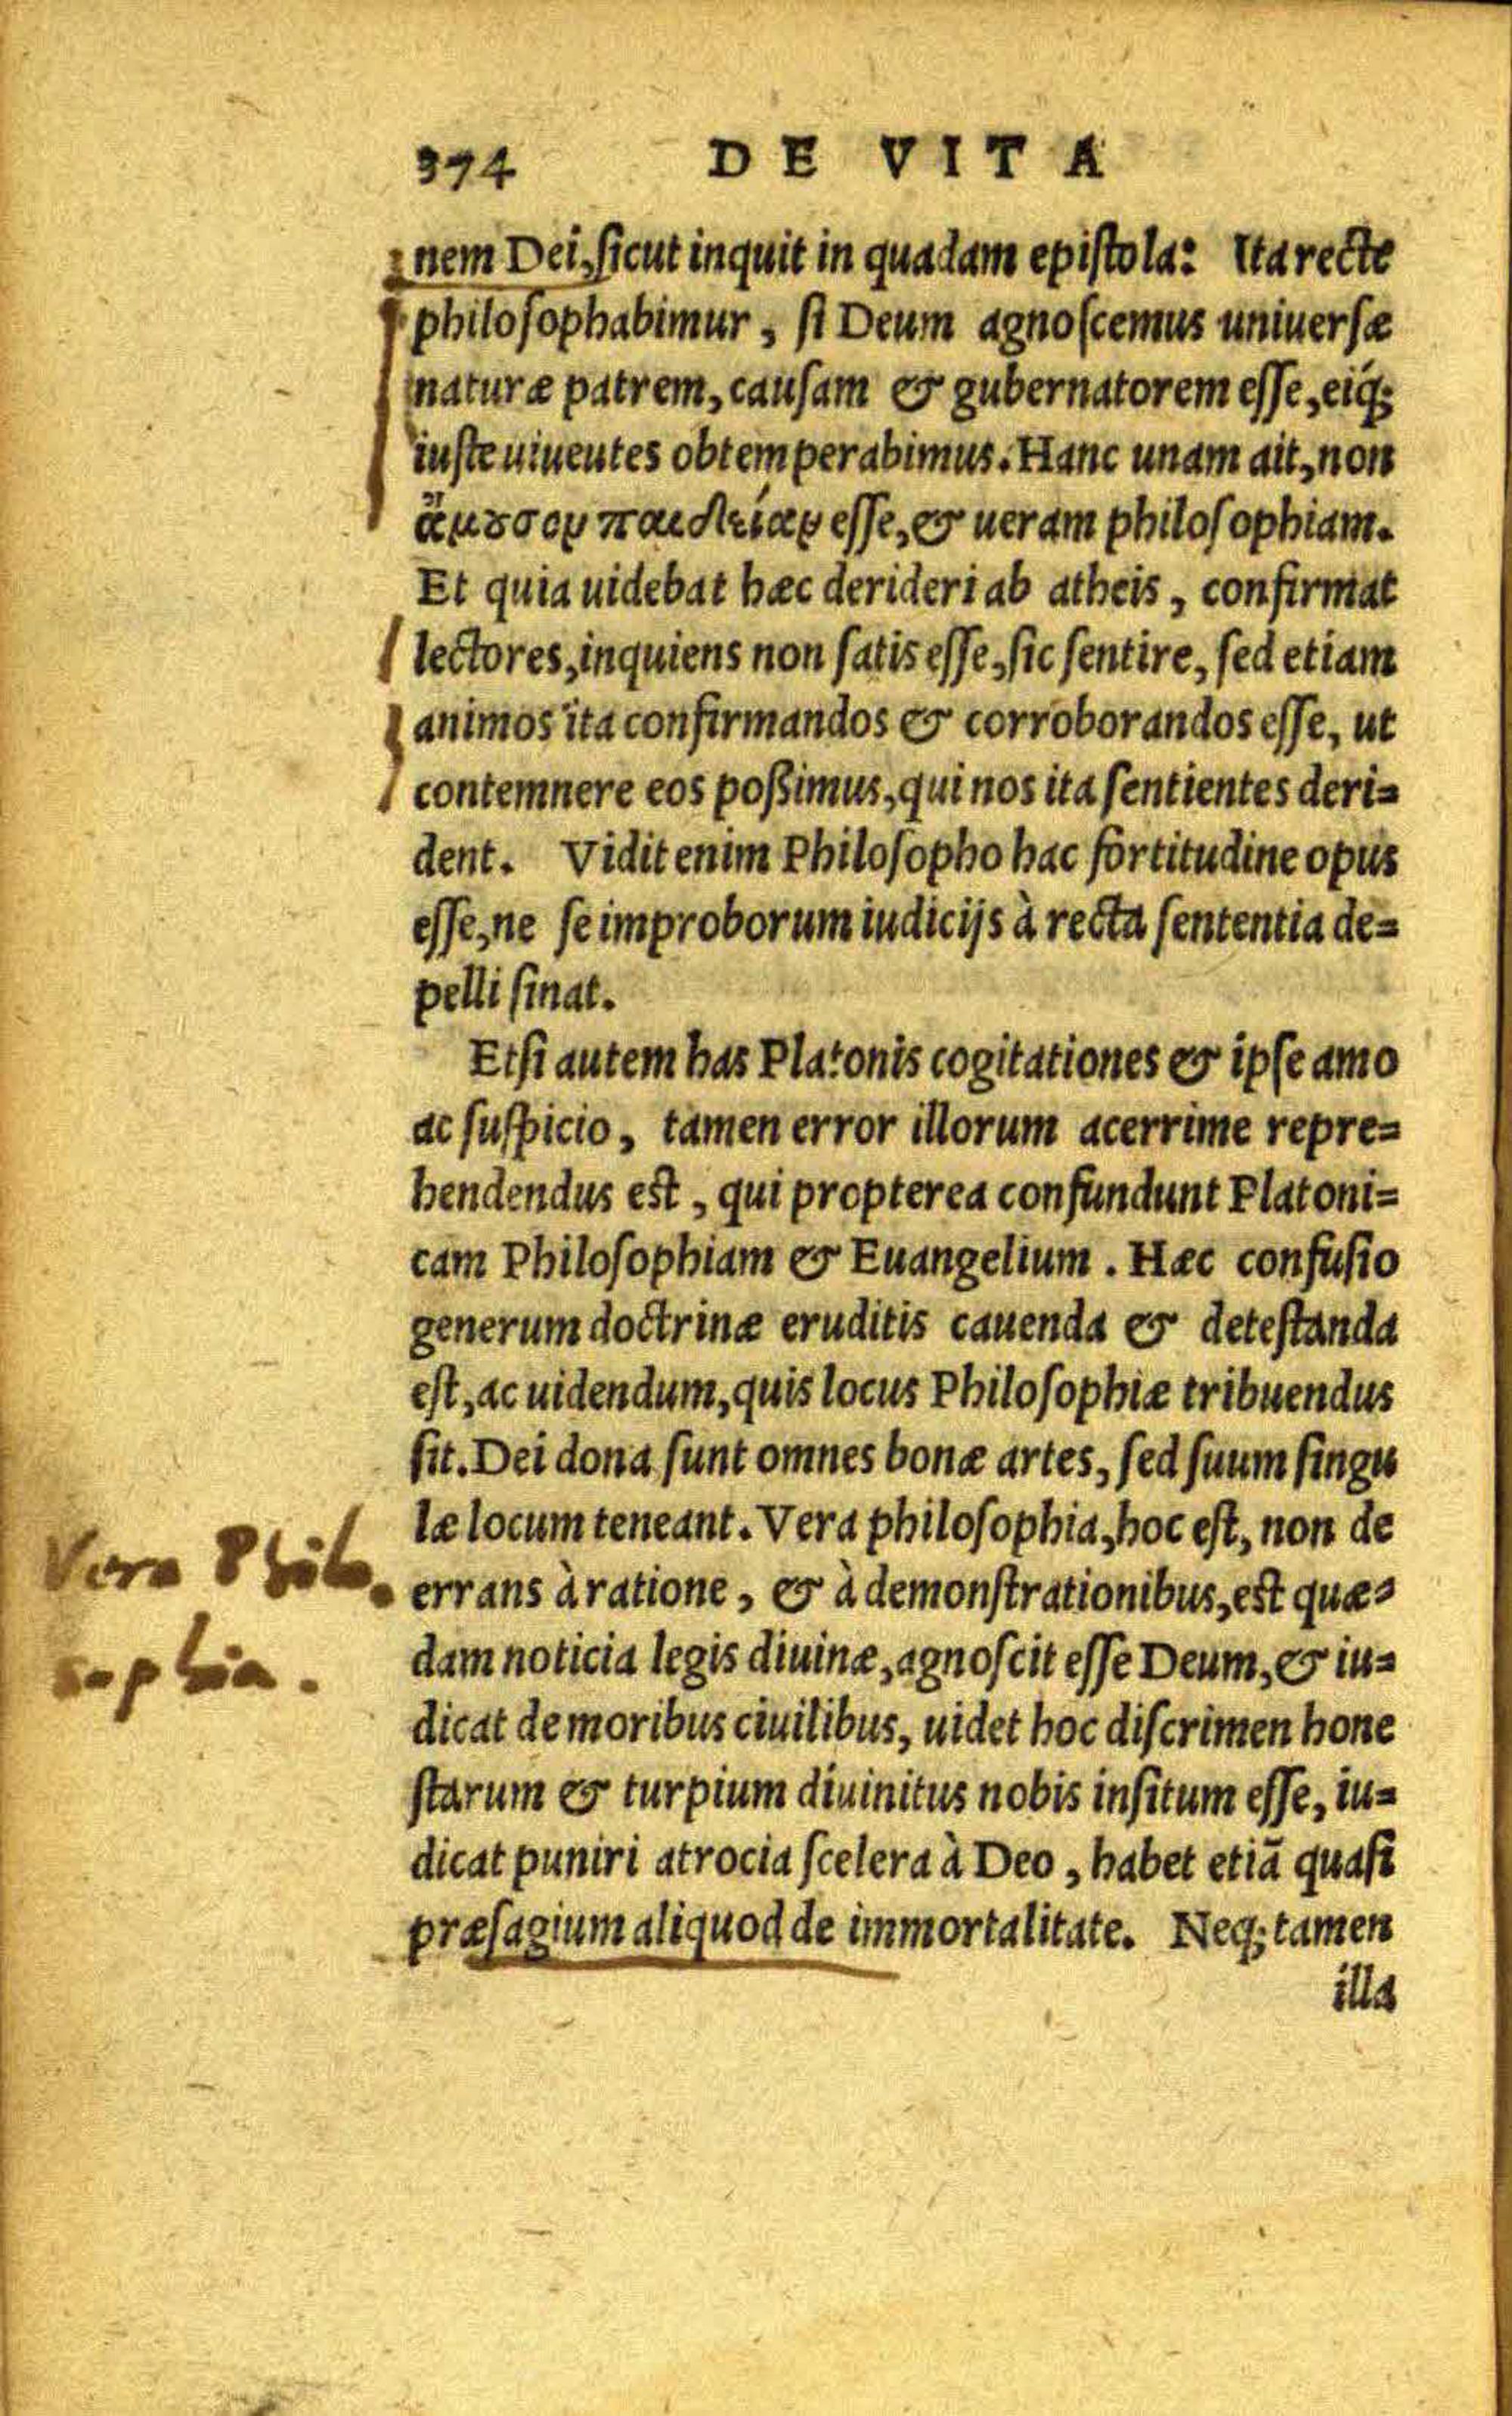 374 DE VITA
nem Dei, sicut inquit in quadam epistola: Ita recte
philosophabimur, si Deum agnoscemus uniuersæ
naturæ patrem, causam & gubernatorem esse, eiq́;
iuste uiuentes obtemperabimus. Hanc unam ait, non
ἄμȣσον παιδείαν esse, & ueram philosophiam.
Et quia uidebat hæc derideri ab atheis, confirmat
lectores, inquiens non satis esse, sic sentire, sed etiam
animos ita confirmandos & corroborandos esse, ut
contemnere eos poßimus, qui nos ita sentientes deri=
dent. Vidit enim Philosopho hac fortitudine opus
esse, ne se improborum iudicijs à recta sententia de=
pelli sinat.
Etsi autem has Platonis cogitationes & ipse amo
ac suspicio, tamen error illorum acerrime repre=
hendendus est, qui propterea confundunt Platoni=
cam Philosophiam & Euangelium. Hæc confusio
generum doctrinæ eruditis cauenda & detestanda
est, ac uidendum, quis locus Philosophiæ tribuendus
sit. Dei dona sunt omnes bonæ artes, sed suum singu
læ locum teneant. Vera philosophia, hoc est, non de
errans à ratione, & à demonstrationibus, est quæ=
dam noticia legis diuinæ, agnoscit esse Deum, & iu=
dicat de moribus ciuilibus, uidet hoc discrimen hone
starum & turpium diuinitus nobis insitum esse, iu=
dicat puniri atrocia scelera à Deo, habet etiã quasi
præsagium aliquod de immortalitate. Neq; tamen
illa
Vera Philo
sophia.